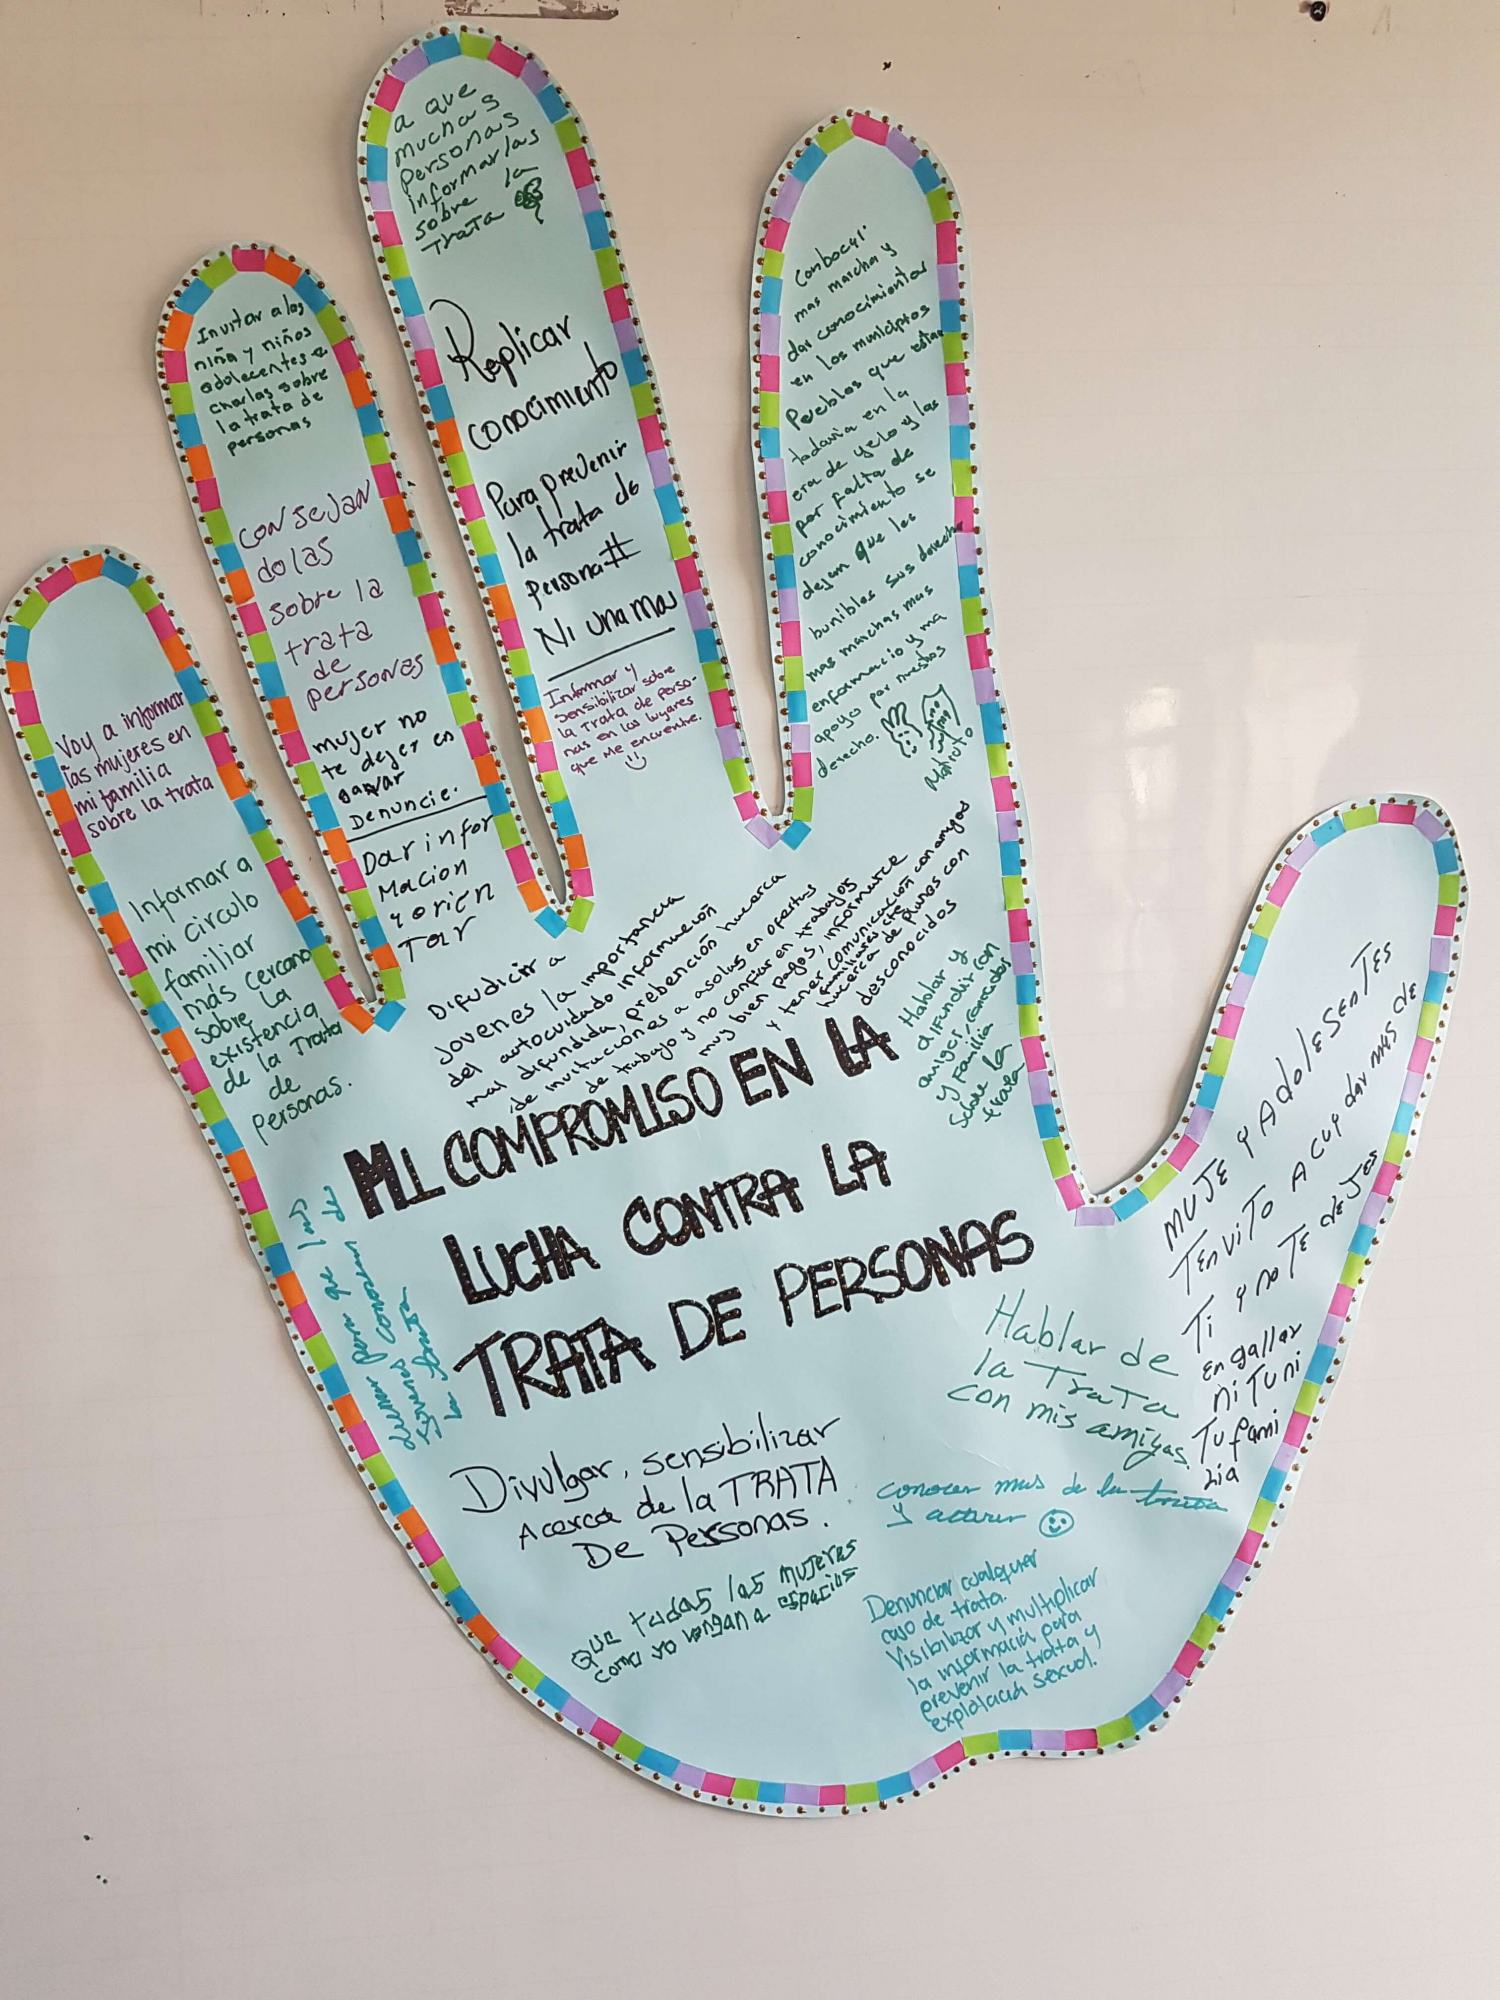 a que
muchas
personas
informarlas
sobre la
trata
Replicar
conocimiento
Para prevenir
la trata de
persona#
Ni una mas
Informar y
sensibilizar sobre
la trata de perso-
nas en los lugares
que me encuentre.
Invitar a las
niña y niños
adolecentes a
charlas sobre
la trata de
personas
CONSEJAN
dolas
sobre la
trata
de
personas
mujer no
te dejes en
Denuncie.
Dar infor
macion
y orien
Tar
Voy a informar
a las mujeres en
mi familia
sobre la trata
Informar a
mi circulo
familiar
más cercano
sobre la
existencia
de la Trata
de
Personas.
mas marcha y
dar conocimientos
en los municipios
Pueblos que estan
todavia en la
era de yelo y las
por falta de
conocimiento se
dejan que les
sus derecho
mas marchas mas
enformacio y ma
apoyo por nuestros
derecho.
Difudicir a
Jovenes la importancia
del autocuidado información
mas difundida, prebención hacerca
de invitaciones a asolas en ofertas
de trabajo y no confiar en trabajos
muy bien pagos, informarce
y tener comunicación con amigos
familiares etc
hacerca de planes con
desconocidos
Hablar y
difundir con
amigos, conocidos
y familia
sobre la
trata
MI COMPROMISO EN LA
LUCHA CONTRA LA
TRATA DE PERSONAS
para que las
conozcan de
la trata
MUJE y AdOlESENTES
TENVITO A CUY dar mas de
Ti y no TE dEJES
Engallar
ni Tu ni
Tu fami
Lia
Hablar de
la Trata
con mis amigas.
Divulgar, sensibilizar
Acerca de la TRATA
De Personas.
conocer mas de la trata
y actuar
Que todas las mujeres
como yo vengan a espacios
Denunciar cualquier
caso de trata.
Visibilizar y multiplicar
la información para
prevenir la trata y
explotación sexual.